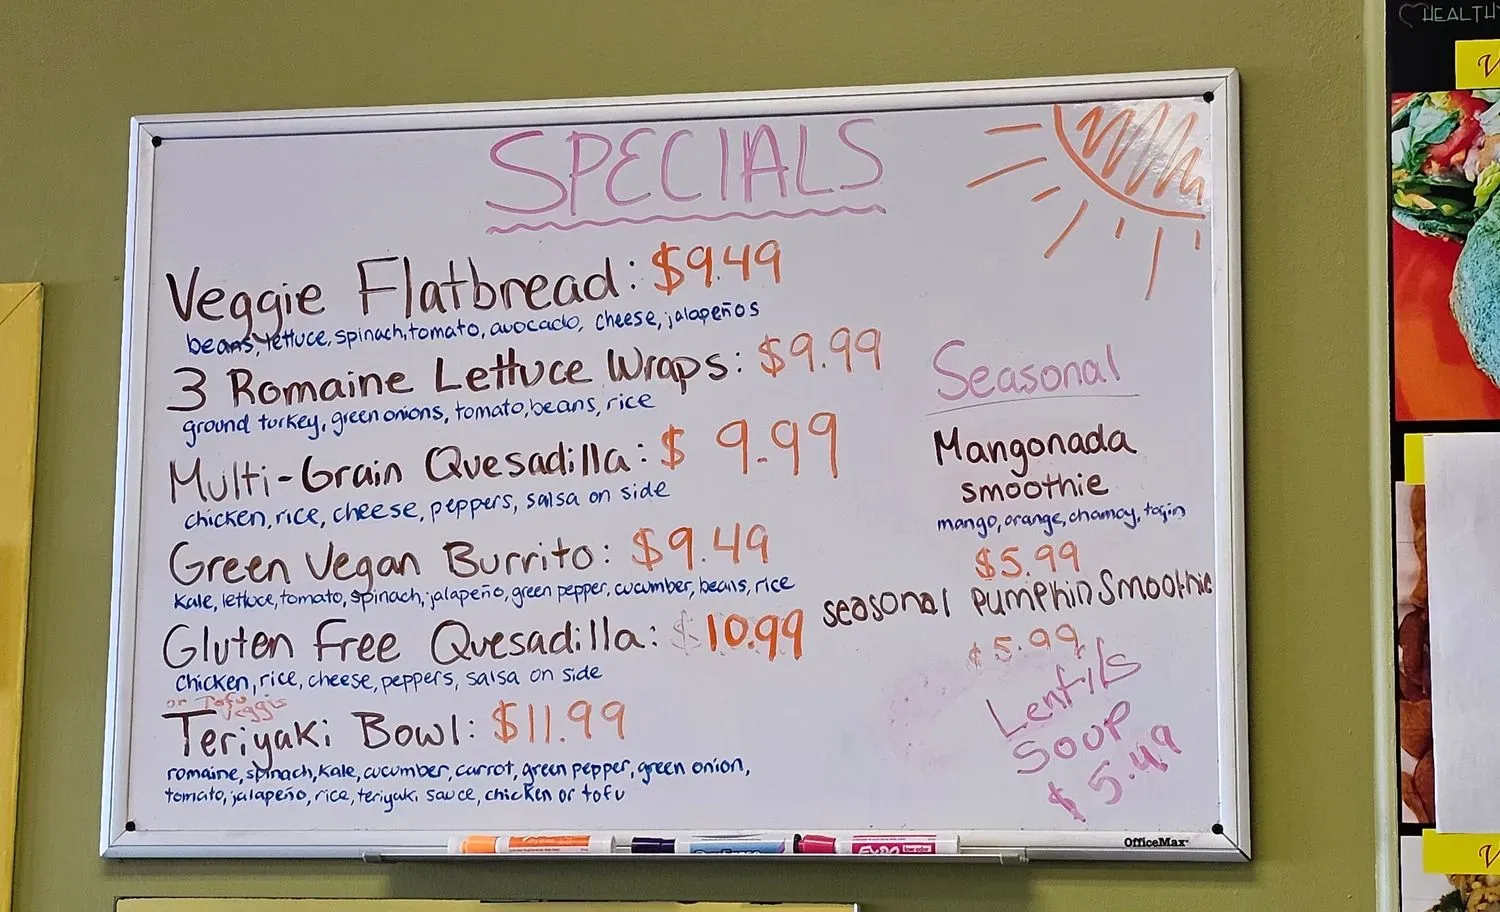 SPECIALS
Veggie Flatbread: $9.49
beans, lettuce, spinach, tomato, avocado, cheese, jalapeños
3 Romaine Lettuce Wraps: $9.99
ground turkey, green onions, tomato, beans, rice
Multi-Grain Quesadilla: $9.99
chicken, rice, cheese, peppers, salsa on side
Green Vegan Burrito: $9.49
Kale, lettuce, tomato, spinach, jalapeño, green pepper, cucumber, beans, rice
Gluten Free Quesadilla: $10.99
chicken, rice, cheese, peppers, salsa on side
or Tofu
veggis
Teriyaki Bowl: $11.99
romaine, spinach, kale, cucumber, carrot, green pepper, green onion,
tomato, jalapeño, rice, teriyaki sauce, chicken or tofu
Seasonal
Mangonada
smoothie
mango, orange, chamoy, tajin
$5.99
seasonal Pumpkin Smoothie
$5.99
Lentils
Soup
$5.49
OfficeMax
EXPO
HEALTHY